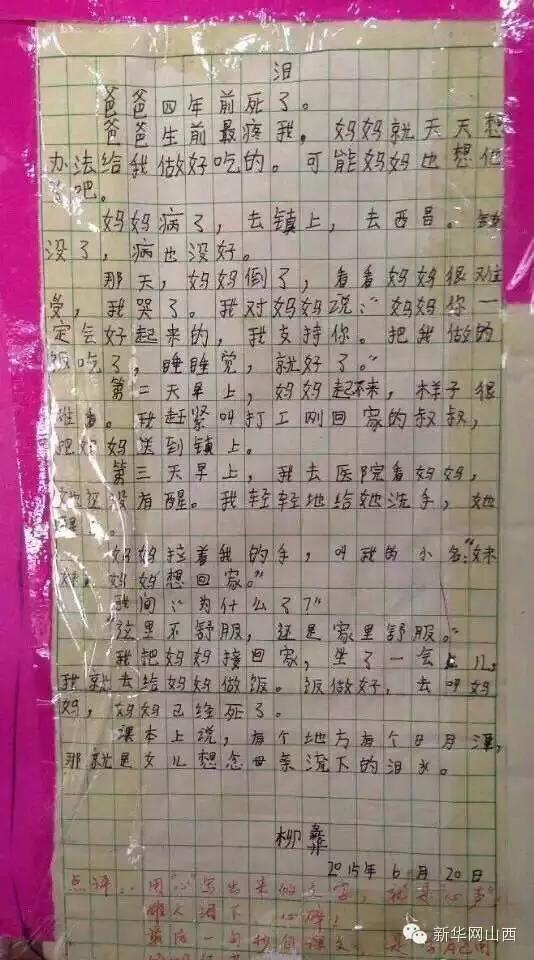 泪
爸爸四年前死了。
爸爸生前最疼我,妈妈就天天想
办法给我做好吃的。可能妈妈也想他
了吧。
妈妈病了,去镇上,去西昌。钱
没了,病也没好。
那天,妈妈倒了,看看妈妈很难
受,我哭了。我对妈妈说:“妈妈你一
定会好起来的,我支持你。把我做的
饭吃了,睡睡觉,就好了。”
第二天早上,妈妈起不来,样子很
难看。我赶紧叫打工刚回家的叔叔,
把妈妈送到镇上。
第三天早上,我去医院看妈妈,
她还没有醒。我轻轻地给她洗手,她
醒了。
妈妈拉着我的手,叫我的小名:“妹
妹,妈妈想回家。”
我问:“为什么了?”
“这里不舒服,还是家里舒服。”
我把妈妈接回家,坐了一会儿,
我就去给妈妈做饭。饭做好,去叫妈
妈,妈妈已经死了。
课本上说,有个地方有个日月潭,
那就是女儿想念母亲流下的泪水。
柳彝
2015年6月20日
点评:用“心”写出来的文字,就是“心声”,
催人泪下,心碎!
最后一句
新华网山西